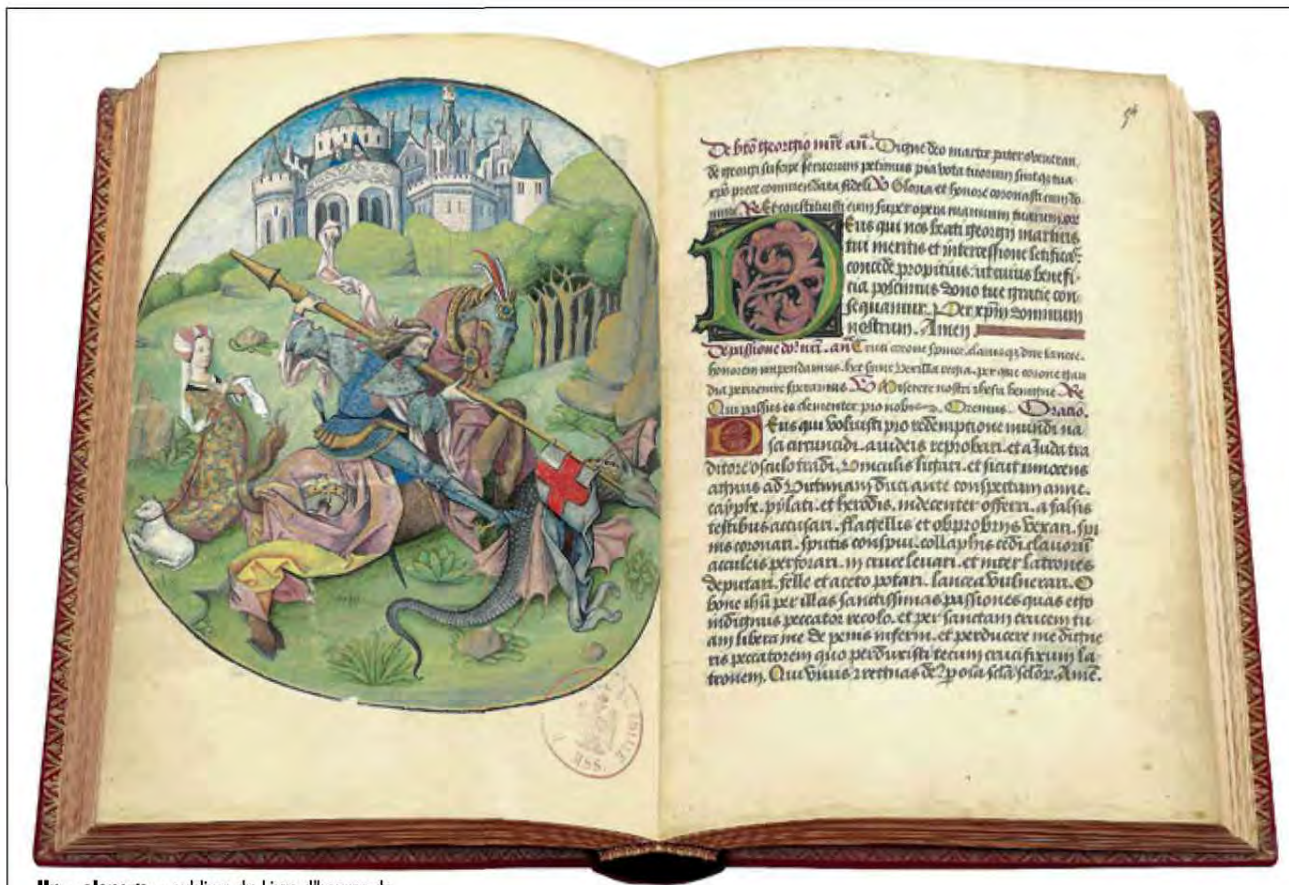 De bt̄o georgio mr̄e an̄. Digne deo martir pater obuentran
de georgi suscipe seruorum petimus pia vota tuorum sint q̨ tua
xp̄o prece commendata fideli V Gloria et honore coronasti eum do
mine. Re Et constituisti eum super opera manuum tuarum. or̄
Deus qui nos beati georgii martiris
tui meritis et intercessione letificas:
concede propitius: ut cuius benefi
cia poscimus dono tue gratie con
sequamur. Per xp̄m dominum
nostrum. Amen
De passione do. nr̄i. an̄ Cruci corone spinee. clauisq̨ dire lancee.
honorem impendamus. hec sunt vexilla regia. per que corone gau
dia peruenire speramus V Miserere nostri ihesu benigne Re
Qui passus es clementer pro nobis Oremus Oratio.
Deus qui voluisti pro redemptione mundi na
sci circuncidi. a iudeis reprobari. et a Juda tra
ditore osculo tradi. vinculis ligari. et sicut innocens
agnus ad victimam duci ante conspectum anne.
cayphe. pylati. et herodis. indecenter offerri. a falsis
testibus accusari. flagellis et obprobriis vexari. spi
nis coronari. sputis conspui. collaphis cedi. clauorū
acculeis perforari. in cruce leuari. et inter latrones
deputari. felle et aceto potari. lancea vulnerari. O
bone ihū per illas sanctissimas passiones quas ego
indignus peccator recolo. et per sanctam crucem tu
am libera me de penis inferni. et perducere me digne
ris peccatorem quo perduxisti tecum crucifixum la
tronem. Qui viuis et regnas de9 p oīa sclā sclōr. Amē.
MSS